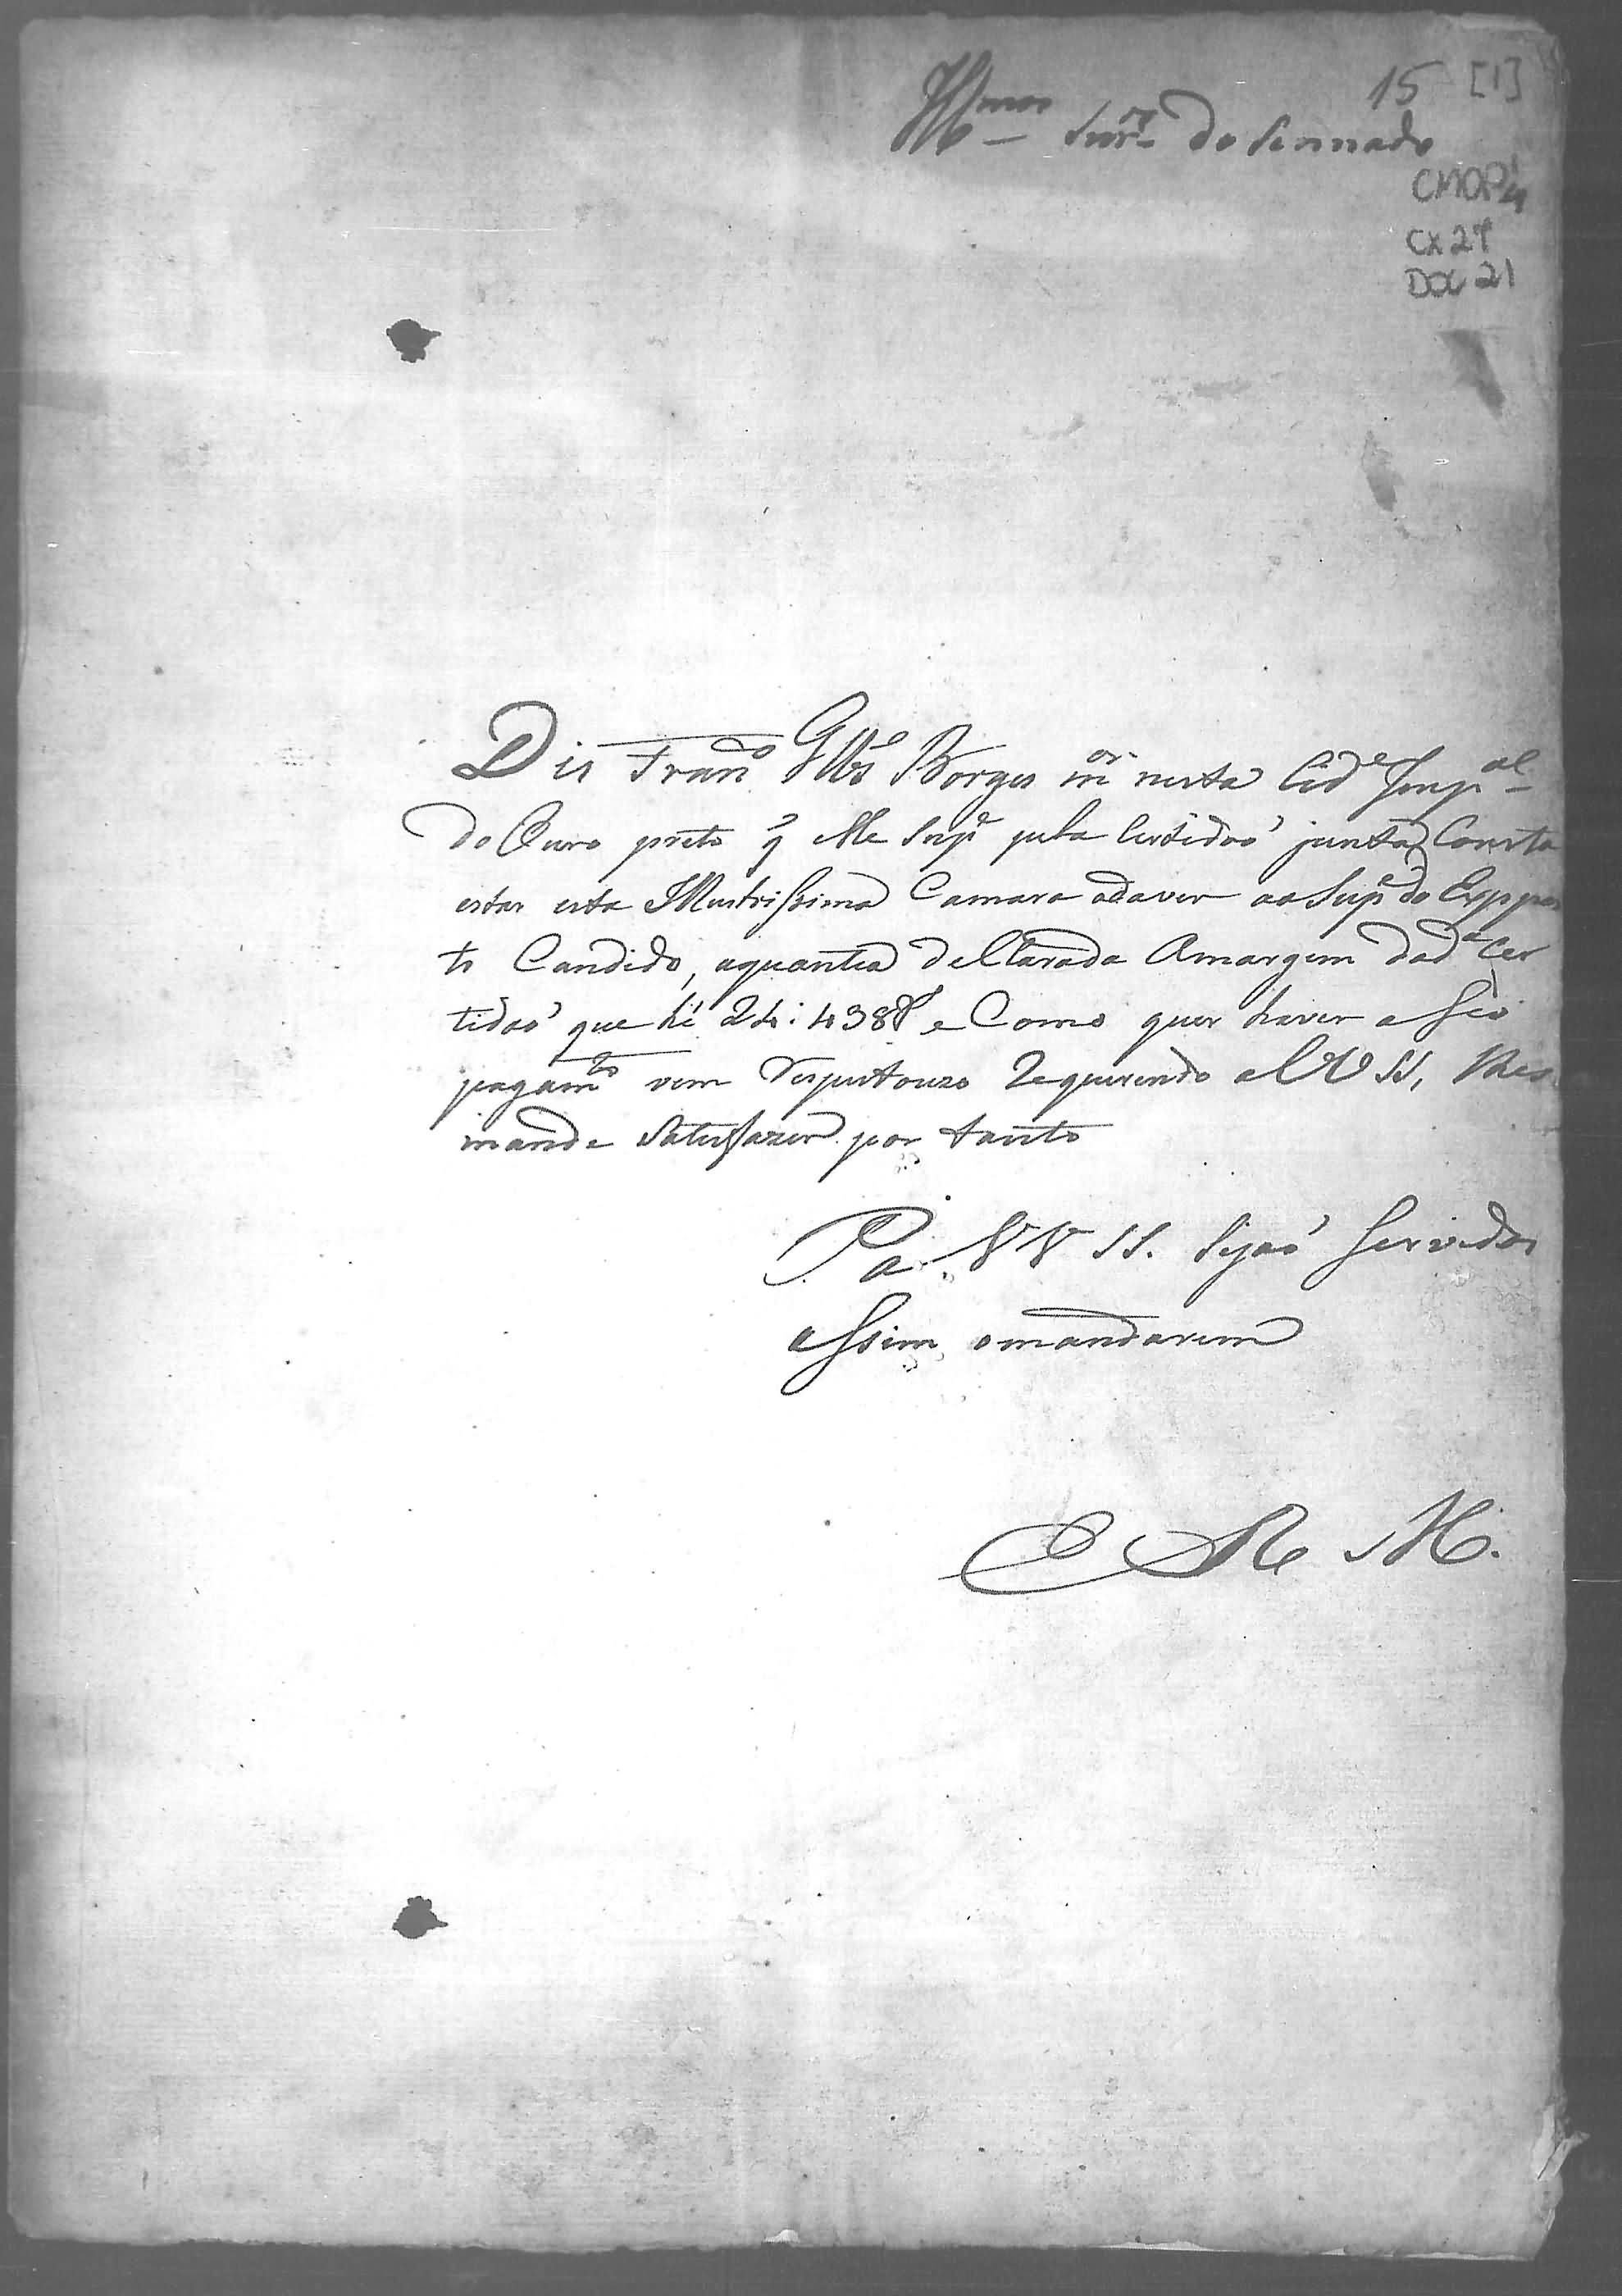 15 [1]
Illmos Snres do Sennado
CMOP
CX 27
DOC 21
Dis Franco Glz Borges mor nesta Cide Impal
do Ouro preto q elle Supe pela Certidaó junta Consta
estar esta Illustrissima Camara adever ao Supe do Exppos
to Candido, aquantia decllarada Amargem dada Cer
tidaó que hé 24:438 e Como quer haver o Seo
pagamto vem Respeitouzo Requerendo a VV SS, lhes
mande Satisfazer por tanto
Pa VV SS. Sejaó Servidos
assim omandarem
E R M.